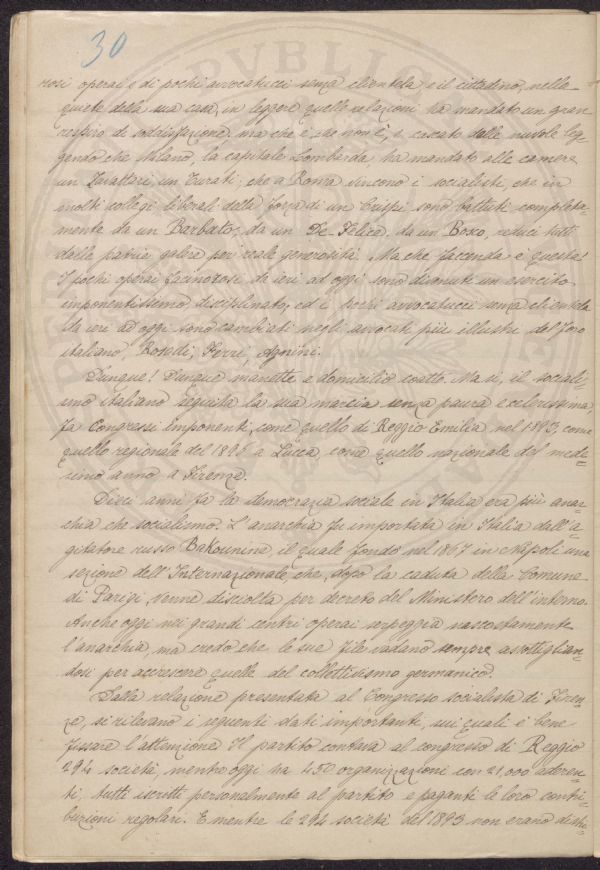 30
rosi operai e di pochi avvocatucci senza clientela e il cittadino, nella
quiete della sua casa, in leggere quelle relazioni ha mandato un gran
respiro di soddisfazione. ma che è, che non è, è cascato dalle nuvole leg-
gendo che Milano, la capitale Lombarda, ha mandato alle camere
un Zavattari, un Turati; che a Roma vincono i socialisti, che in
molti collegi liberali della forza di un Crispi sono battuti completa-
mente da un Barbato, da un De Felice, da un Bosco, reduci tutti
dalle patrie galere per reale generosità. Ma che faccenda è questa!
I pochi operai facinorosi da ieri ad oggi sono divenuti un esercito
imponentissimo, disciplinato, ed i pochi avvocatucci senza clientela
da ieri ad oggi sono cambiati negli avvocati più illustri del foro
italiano, Rosadi, Ferri, Agnini.
Dunque! Dunque manette e domicilio coatto. Ma sì, il sociali
smo italiano seguita la sua marcia senza paura e celerissima,
fa Congressi imponenti, come quello di Reggio Emilia nel 1893, come
quello regionale del 1896 a Lucca, come quello nazionale del mede-
simo anno a Firenze.
Dieci anni fa la democrazia sociale in Italia era più anar-
chia che socialismo. L'anarchia fu importata in Italia dall'a-
gitatore russo Bakounine, il quale fondò nel 1867 in Napoli una
sezione dell'Internazionale, che, dopo la caduta della Comune
di Parigi, venne disciolta per decreto del Ministero dell'interno.
Anche oggi nei grandi centri operai serpeggia nascostamente
l'anarchia, ma credo che le sue file vadano sempre assottiglian-
dosi per accrescere quelle del collettivismo germanico.
Dalla relazione presentata al Congresso socialista di Firen-
ze, si rilevano i seguenti dati importanti, sui quali è bene
fissare l'attenzione. Il partito contava al congresso di Reggio
294 società, mentre oggi ha 450 organizzazioni con 21,000 aderen-
ti, tutti iscritti personalmente al partito e paganti le loro contri-
buzioni regolari. E mentre le 294 società del 1893 non erano distri-